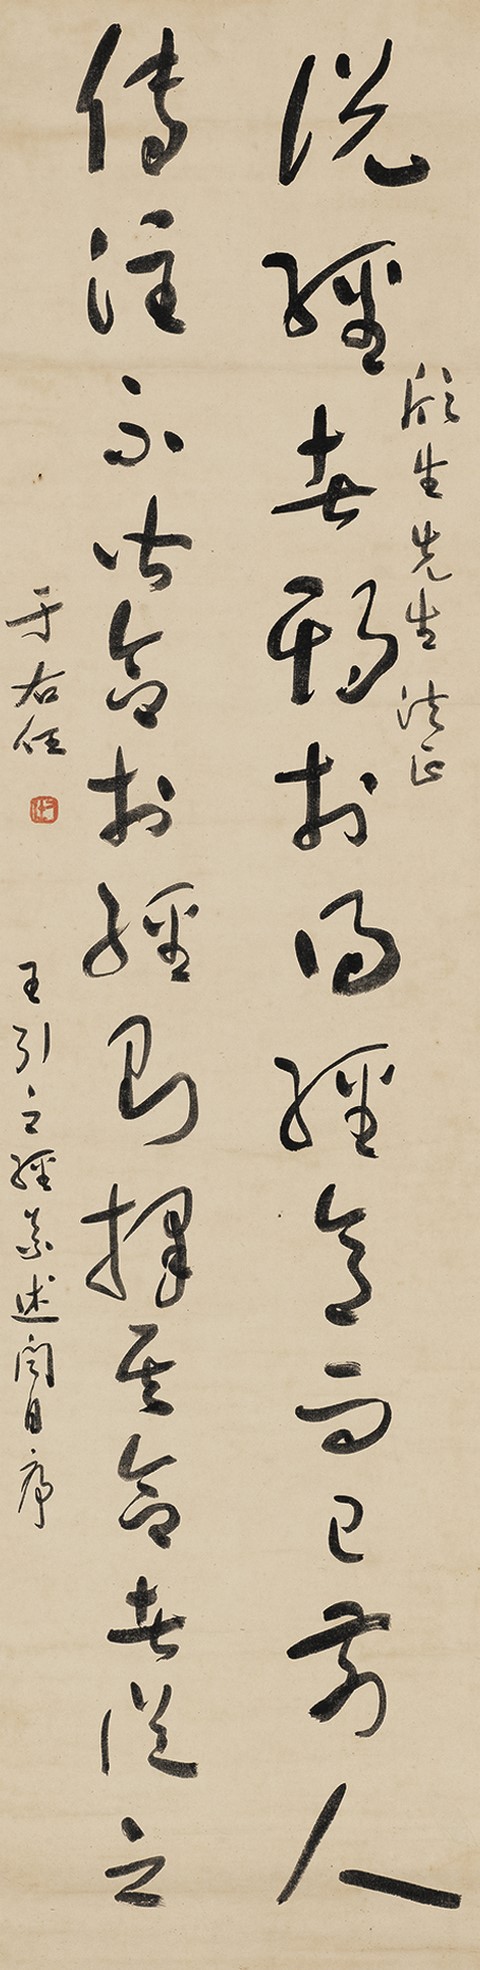 說經者期於得經意而已前人
傳注不皆合於經則擇其合者從之
生先生法正
于右任
王引之經義述聞自序